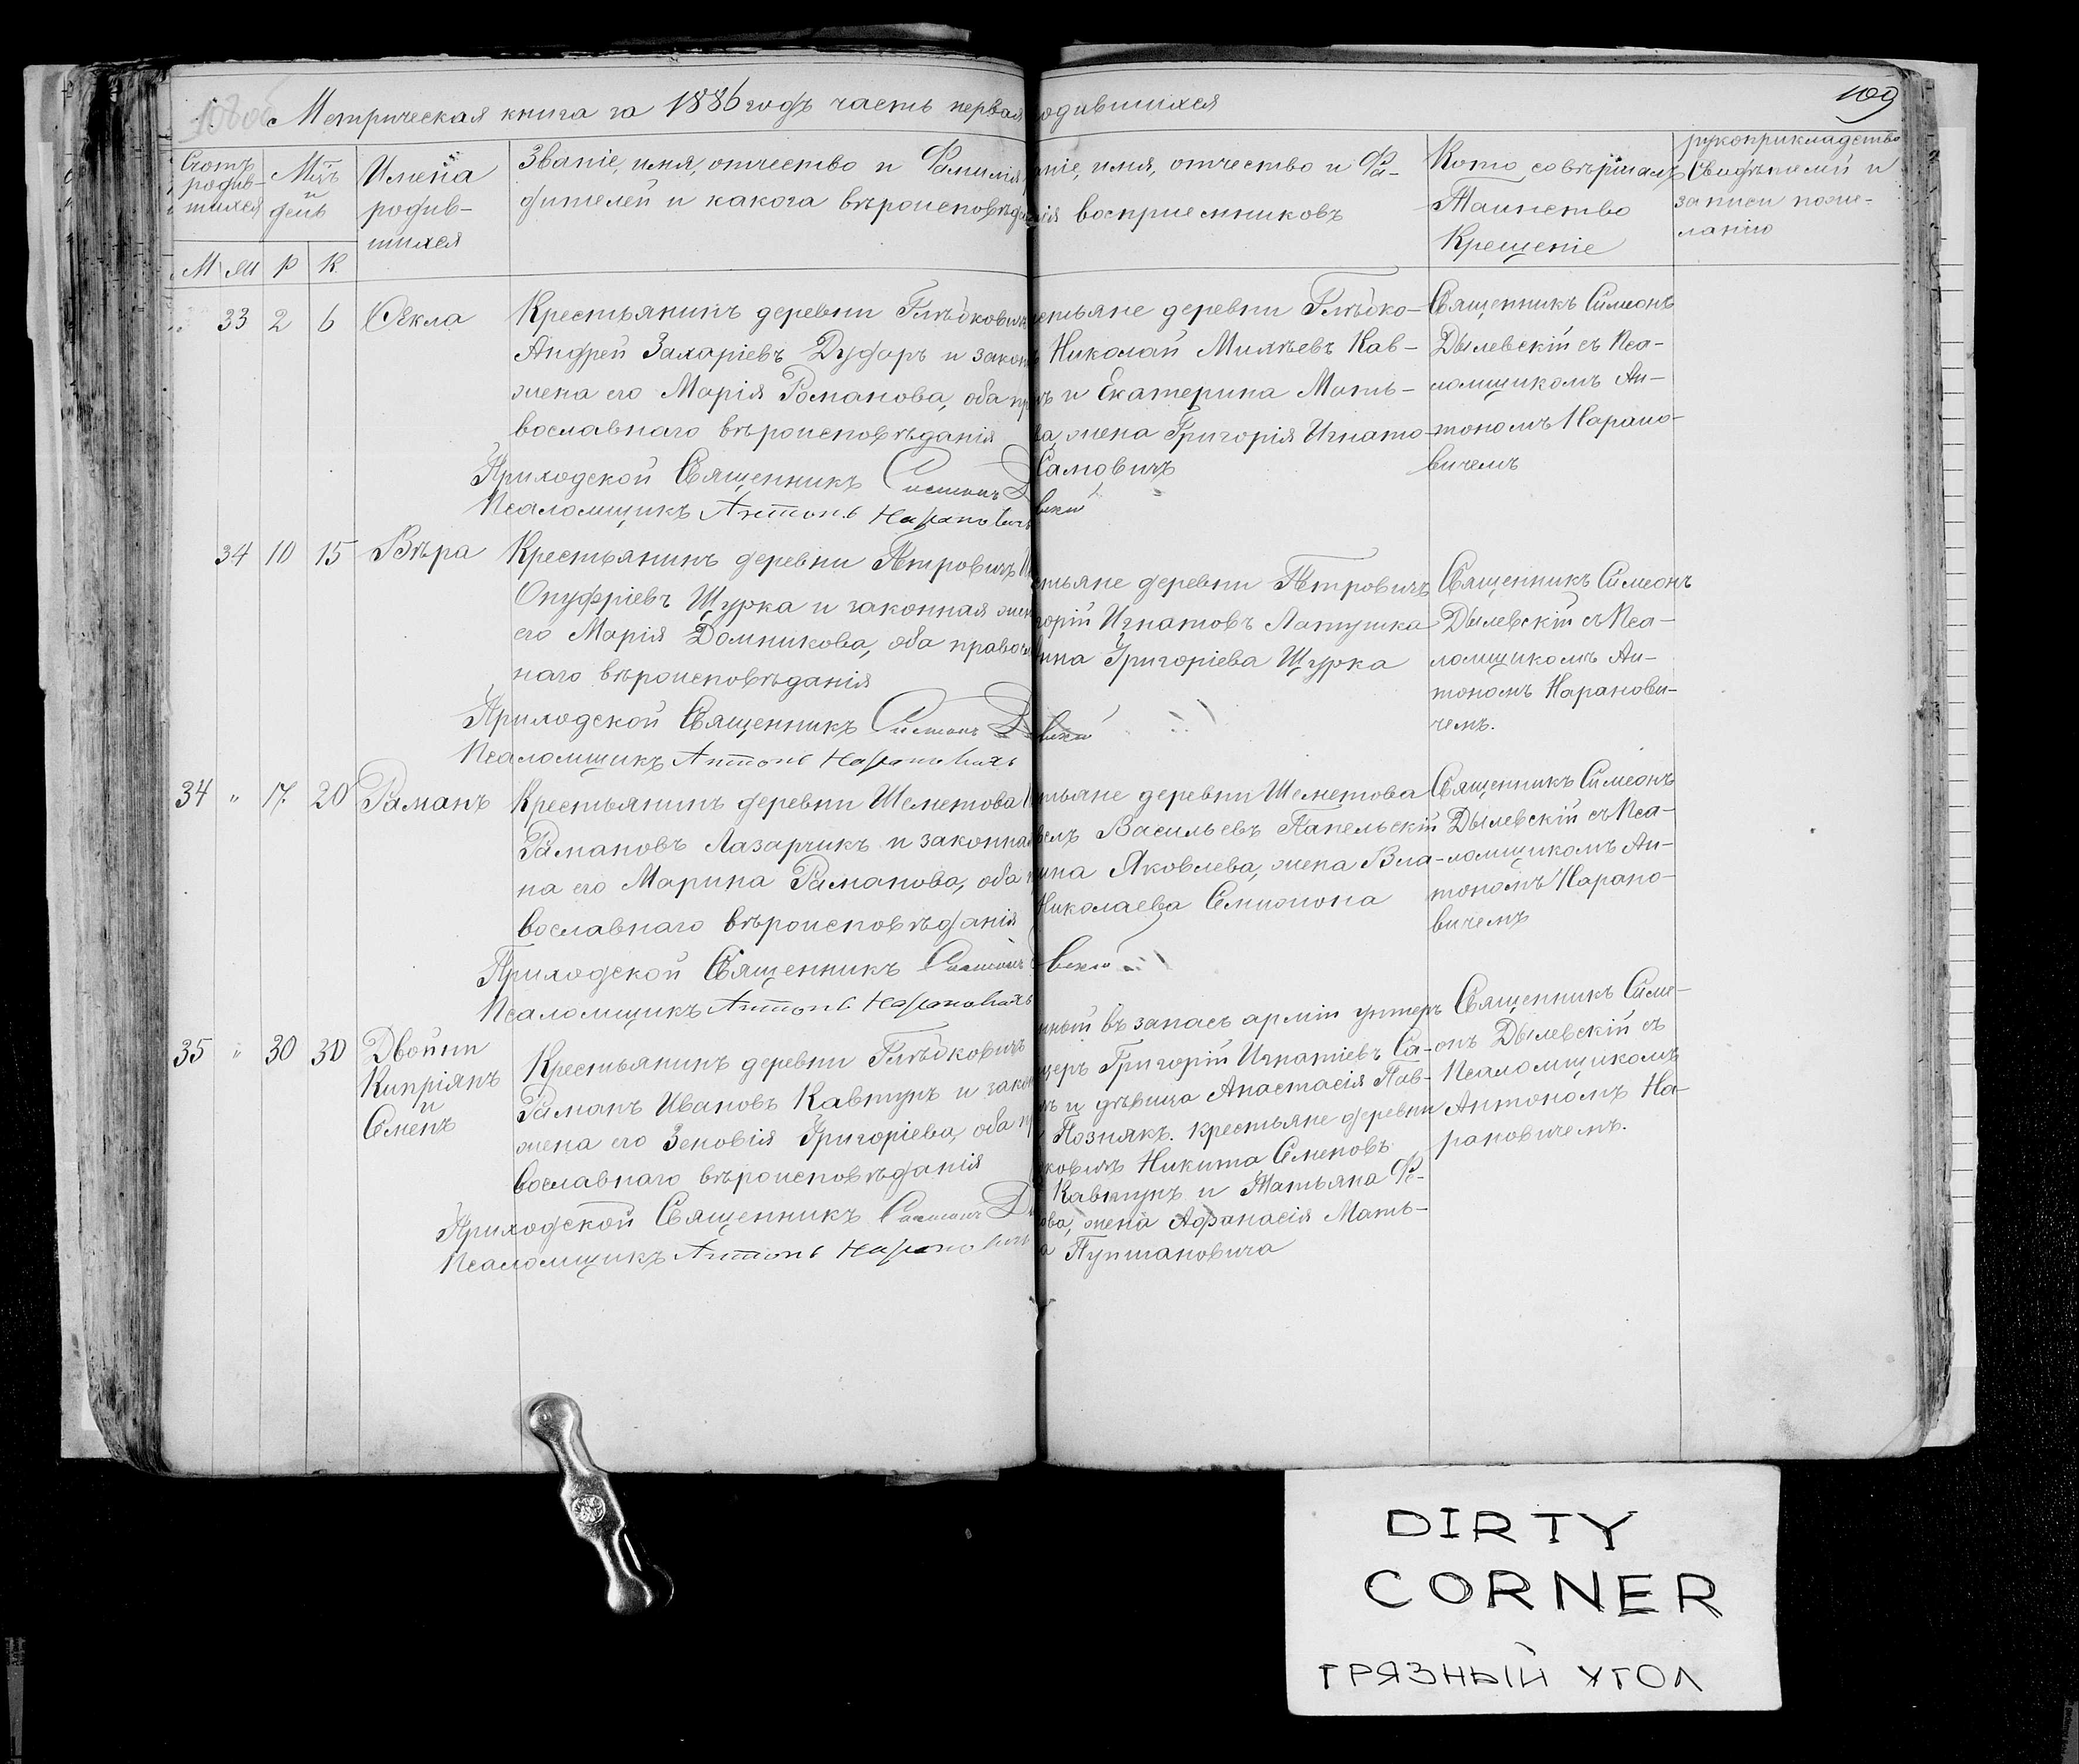 Метрическая книга за 1886 годъ часть первая одившихся
109
Счотъ родив- шихся
Мцъ и день
Имена родив- шихся
Званіе, имя, отчество и Фамилія
дителей и какога вѣроисповѣд
ніе, имя, отчество и Фа-
лія восприемниковъ
Кото совѣршалъ
Таинство
Крещеніе
рукоприкладство
Свидѣтелей и
записи поже-
ланію
М М Р К
33 2 6 Ѳекла
Крестьянинъ деревни
Андрей Захаріевъ Дударъ и закон
жена его Марія Романова, оба пр
вославнаго вѣроисповѣданія
Приходской Священникъ Симеонъ
Псаломщикъ Антонъ Нарановичъ
стьяне деревни
Николай Михѣевъ Кав-
ъ и Екатерина Матѣ-
ва, жена Григорія Игнато-
Самовичъ
вскій
Священникъ Симеонъ
Дылевскій съ Пса-
ломщикомъ Ан-
тономъ Нарано-
вичемъ
34 10 15 Вѣра
Крестьянинъ деревни Петровичъ
Онуфріевъ Щурка и законная жен
его Марія Домникова, оба правосл
наго вѣроисповѣданія
Приходской Священникъ Симеонъ
Псаломщикъ Антонъ Нарановичъ
стьяне деревни Петровичъ
горій Игнатовъ Латушка
ина Григоріева Щурка
вскій
Священникъ Симеонъ
Дылевскій съ Пса-
ломщикомъ Ан-
тономъ Наранови-
чемъ.
34 " 17. 20 Раманъ
Крестьянинъ деревни Шеметова
Рамановъ Лазарчикъ и законна
на его Марина Раманова, оба п
вославнаго вѣроисповѣданія
Приходской Священникъ Симеонъ
Псаломщикъ Антонъ Нарановичъ
тьяне деревни Шеметова
велъ Васильевъ Папельскій
ина Яковлева, жена Вла-
Николаева Семиона
вскій
Священникъ Симеонъ
Дылевскій съ Пса-
ломщикомъ Ан-
тономъ Нарано-
вичемъ
35 " 30 30 Двойни
Кипріянъ
и
Семенъ
Крестьянинъ деревни
Раманъ Ивановъ Кавтунъ и закон
жена его Зеновія Григоріева, оба пр
вославнаго вѣроисповѣданія
Приходской Священникъ Симеонъ
Псаломщикъ Антонъ Нарановичъ
нный въ запасъ арміи унтеръ
церъ Григорій Игнатіевъ Са-
ъ и дѣвица Анастасія Пав-
Познякъ. Крестьяне деревни
ковичъ Никита Семеновъ
Кавтунъ и Татьяна Ѳе-
ова, жена Афанасія Матѣ-
а
Священникъ Симе-
онъ Дылевскій съ
Псаломщикомъ
Антономъ На-
рановичемъ.
DIRTY
CORNER
ГРЯЗНЫЙ УГОЛ